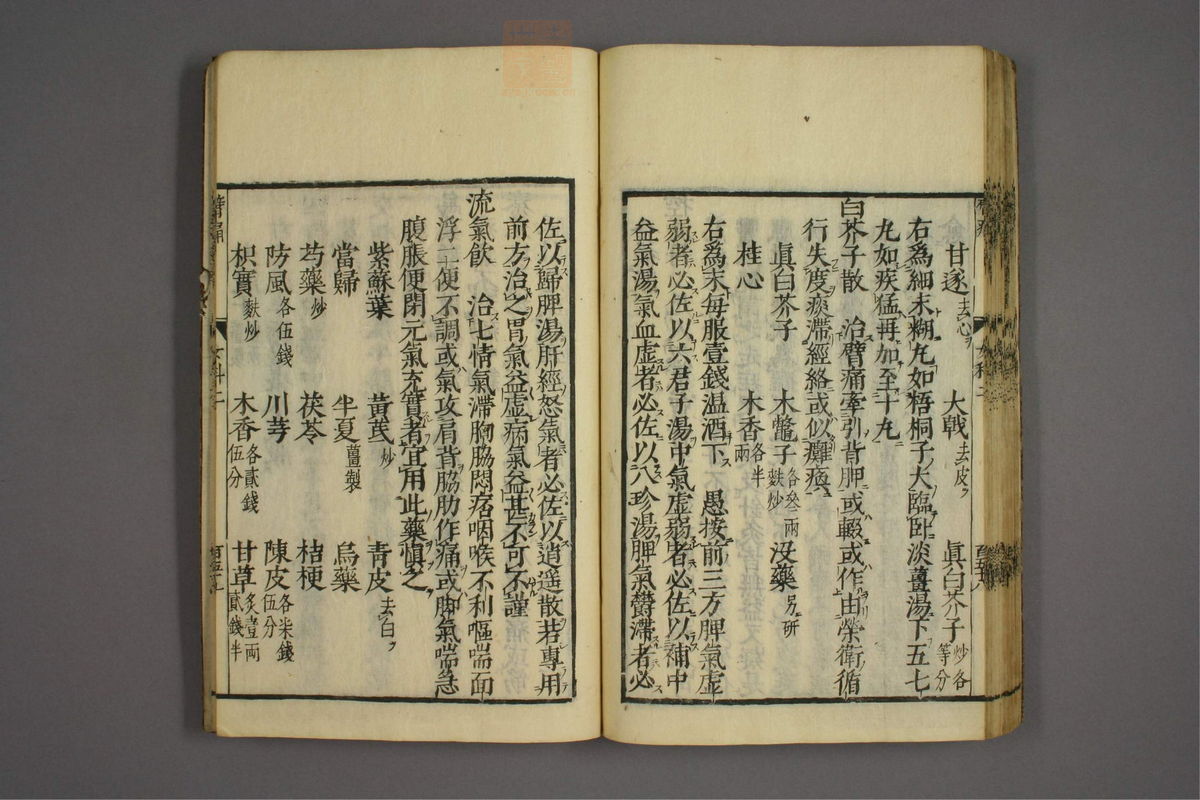 甘遂去心 大戟去皮 眞白芥子炒各等分
右爲細末糊丸如梧桐子大臨臥淡薑湯下五七
丸如疾猛再加至十丸
白芥子散 治臂痛牽引背胛或輟或作由榮衛循
行失度痰滯經絡或似癱瘓
眞白芥子 木鼈子各叁兩麩炒 沒藥另研
桂心 木香各半兩
右爲末每服壹錢温酒下 愚按前三方脾氣虛
弱者必佐以六君子湯中氣虛弱者必佐以補中
益氣湯氣血虛者必佐以八珍湯脾氣鬱滯者必
佐以歸脾湯肝經怒氣者必佐以逍遥散若專用
前方治之胃氣益虛病氣益甚不可不謹
流氣飲 治七情氣滯胸脇悶痞咽喉不利嘔喘面
浮二便不調或氣攻肩背脇肋作痛或脚氣喘急
腹脹便閉元氣充實者宜用此藥愼之
紫蘇葉 黃芪炒 青皮去白
當歸 半夏薑製 烏藥
芍藥炒 茯苓 桔梗
防風各伍錢 川芎 陳皮各柒錢伍分
枳實麩炒 木香各貳錢伍分 甘草炙壹兩貳錢半
女科二